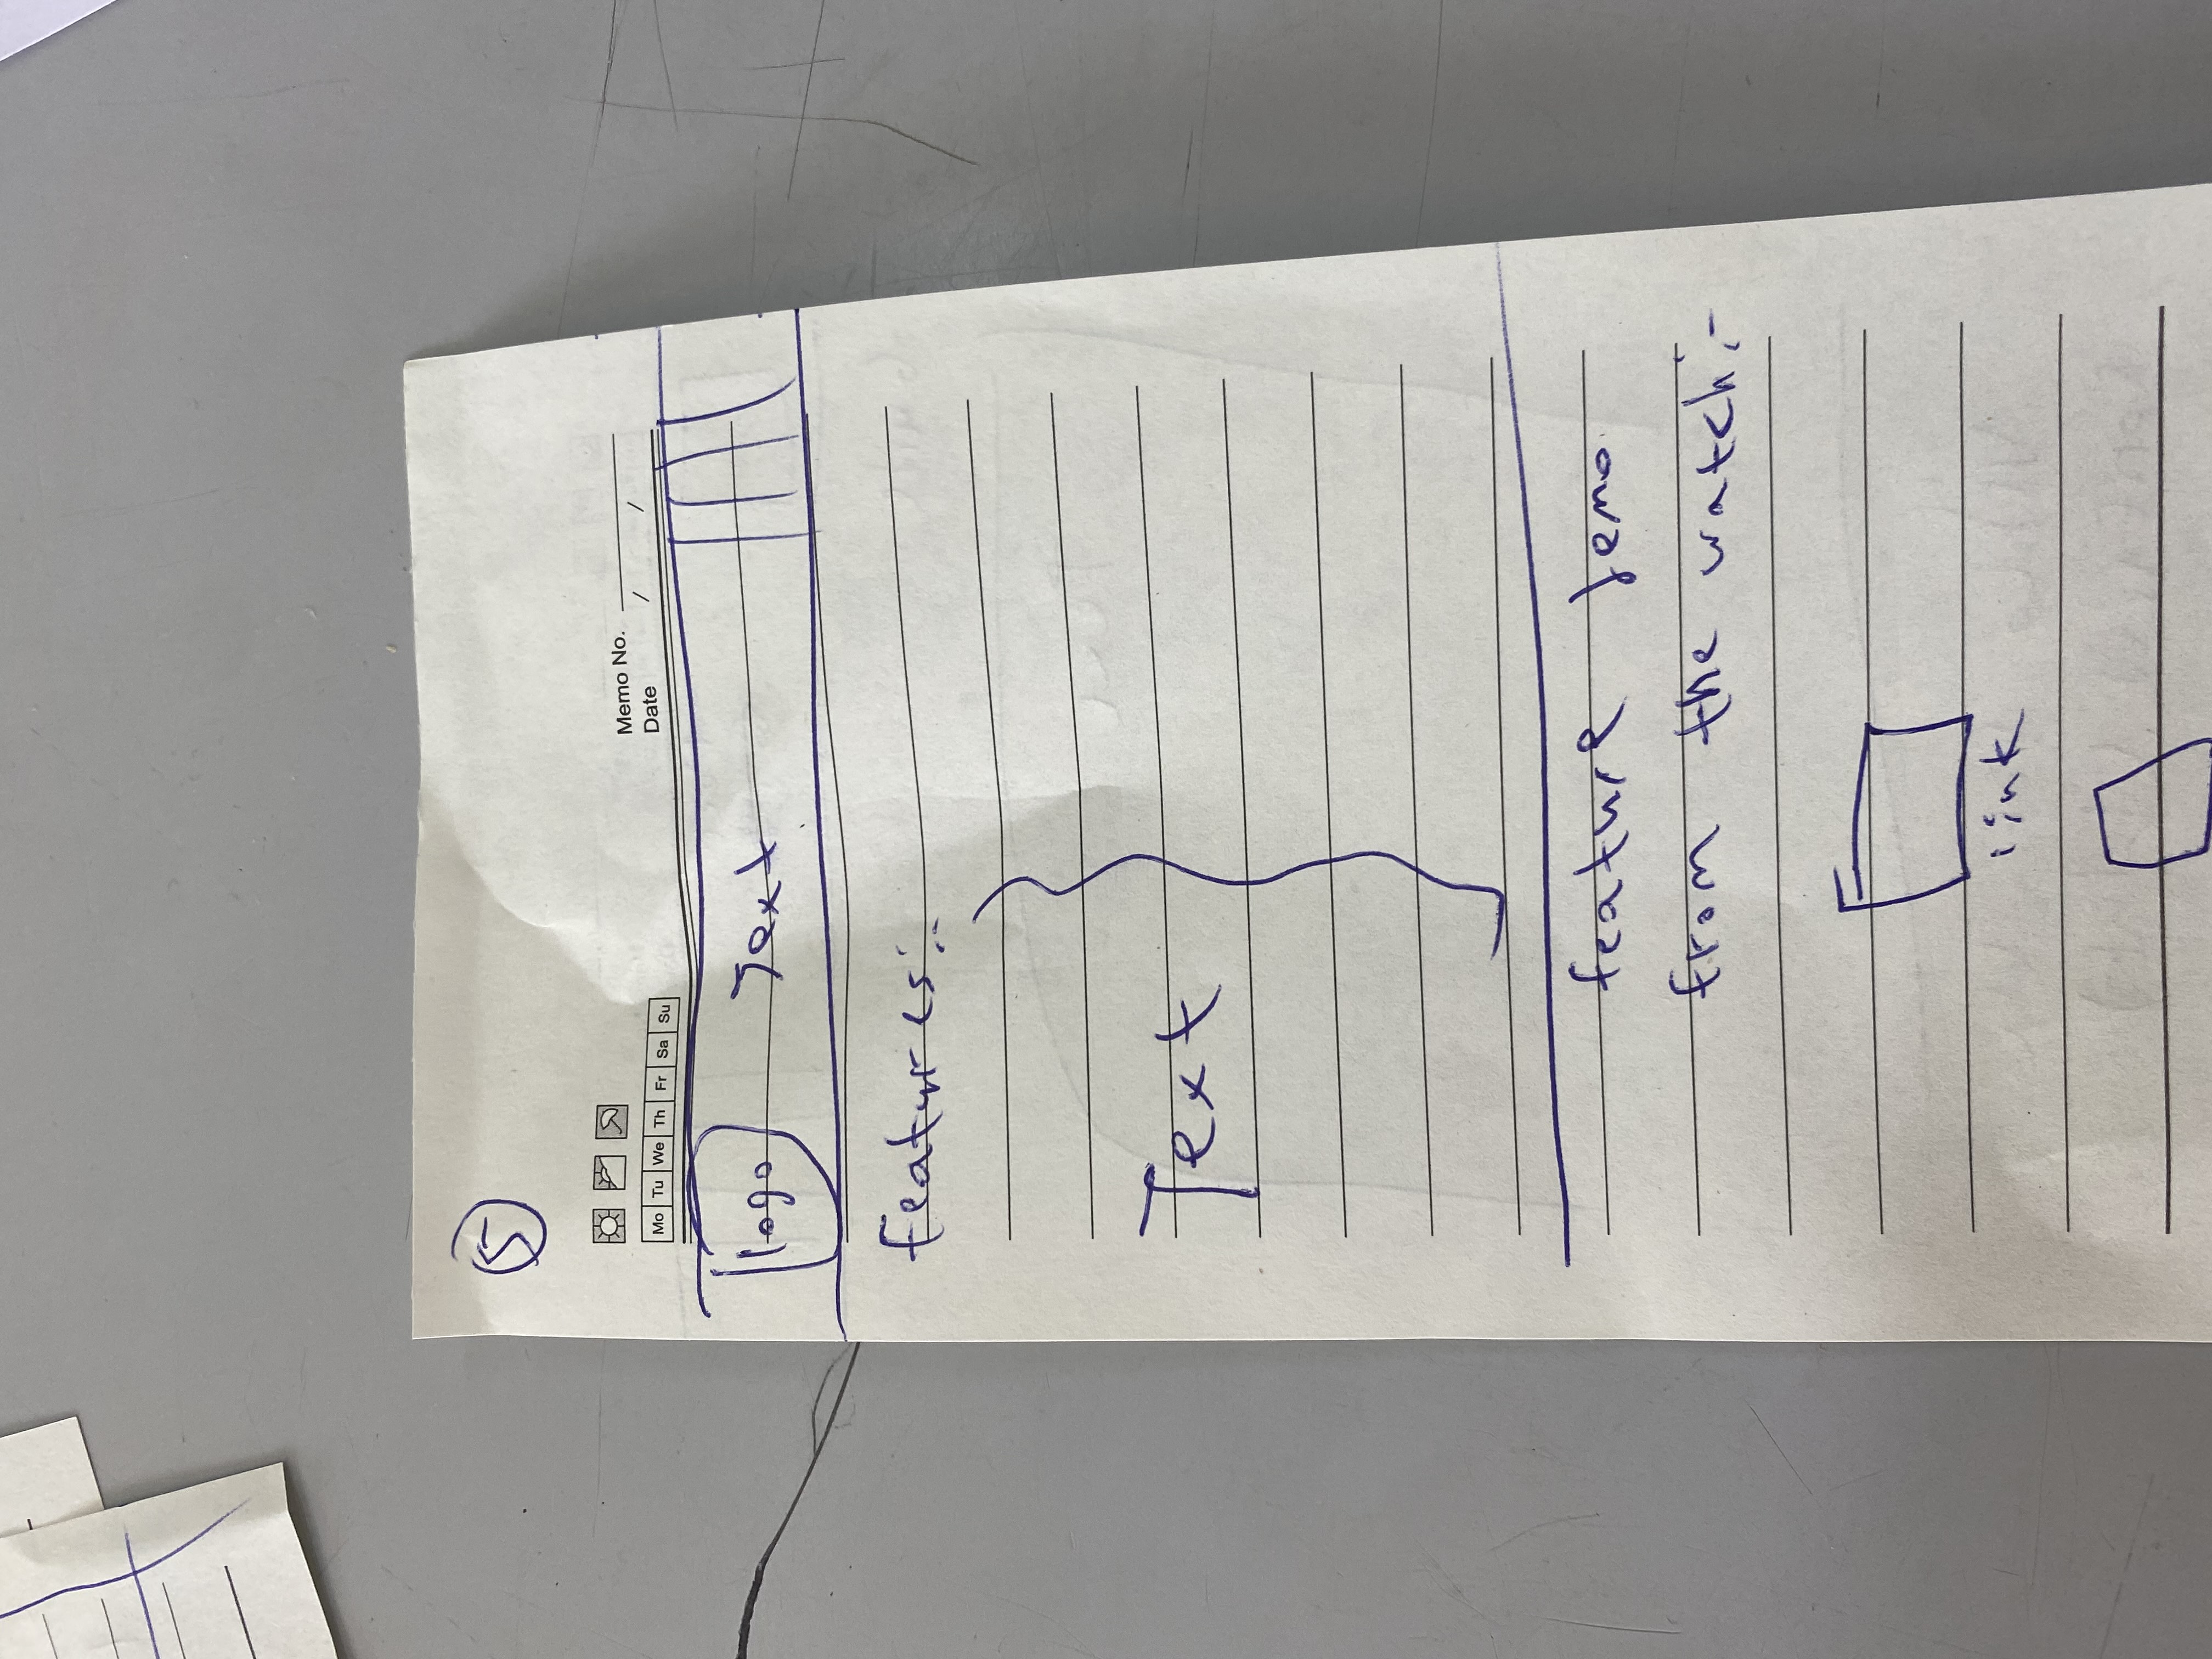 5
Mo Tu We Th Fr Sa Su
Memo No.
Date / /
logo Text
features:-
Text
feature demo
from the watch:-
link